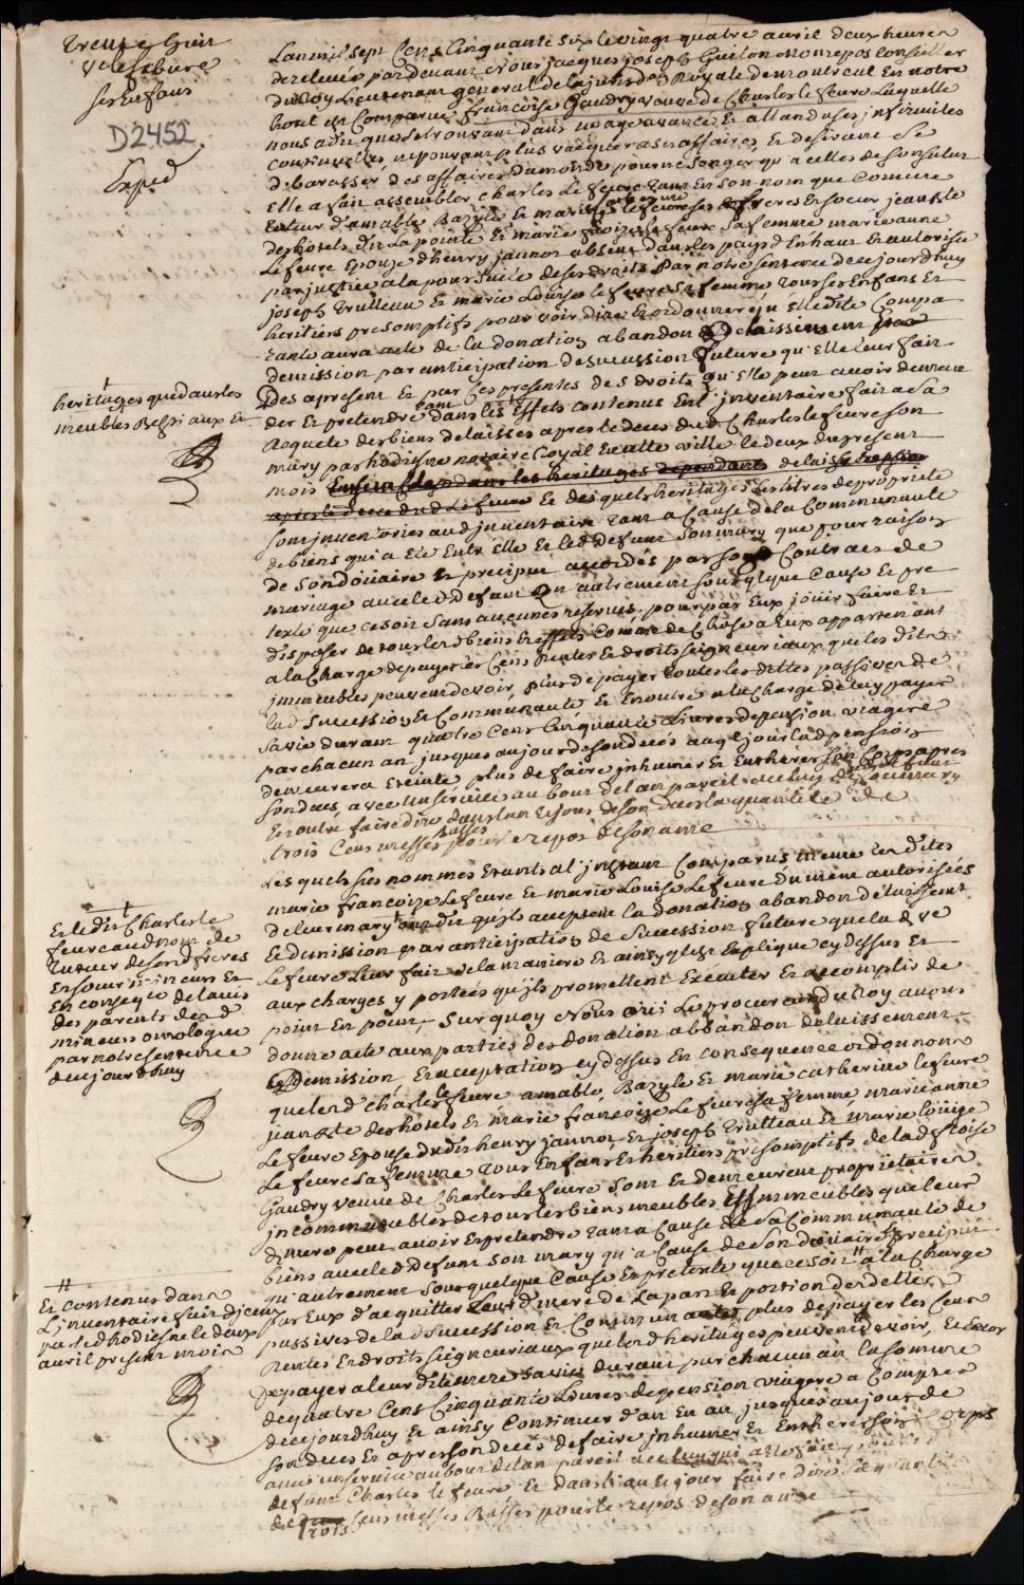 veuve
Lefebvre
ses Enfans
D2452
Exped
L'an mil sept Cens Cinquante six le vingt quatre avril deux heures
de relevée pardevant Nous jacques joseph Guiton Monrepos Conseiller
du Roy Lieutenant general de la jurisdon Royale de montreal En notre
hotel est Comparue françoise Gaudry veuve de Charles lefevre Laquelle
nous a dit que se trouvant dans un age avancé Et attandu ses jnfirmites
continuelles, ne pouvant plus vacquer a ses affaires, Et desirant se
debarasser des affaires du monde pour ne songer qu'a celles de son salut
Elle a fait assembler Charles Le fevre tant En son nom que Comme
tuteur d'amable Bazyle Et marie Catherine lefevre ses freres Et soeur jean Bte
deshotels dit La pointe Et marie françoize le fevre sa femme marie anne
Lefevre Epouze d'henry jannot absent dans les pays d'Enhaut Et autorisée
par justice a la poursuite de ses droits par notre sentence de ce jourdhuy
joseph trutteau Et marie Louise lefevre sa femme tous ses Enfans Et
heritiers presomptifs pour voir dire Et ordonner qu'Elle dite Compa
rante aura acte de la donation abandon Delaissement
demission par anticipation de succession future qu'Elle leur fait
Des apresent Et par Ces presentes des droits qu'Elle peut avoir deman
der Et pretendre tant dans les Effets contenus En l'jnventaire fait a sa
Requete des biens delaissés apres le deces dud Charles lefevre son
mary par hodiesne notaire Royal En cette ville le deux du present
mois Ensemble dans les heritages dependants delaissés
apres le deces dud Lefevre Et desquels heritages Les titres de propriete
sont jnventoriés aud jnventaire tant a Cause de la Communauté
de biens qui a Eté Entre Elle Et led defunt son mary que pour raison
de son doüaire Et preciput accordés par son Contract de
mariage avec led defunt ou autrement sous quelque Cause Et pre
texte que ce soit sans aucunes reserves, pour par Eux joüir faire Et
disposer de tous lesd biens Et effets Comme de Chose a Eux appartenant
a la Charge de payer les Cens Rentes Et droits seigneuriaux que lesdits
jmmeubles peuvent devoir, plus de payer toutes les dettes passives de
lad succession Et Communauté, Et En outre a la charge de luy payer
sa vie durant quatre Cent Cinquante Livres de pension viagere
par chacun an jusques au jour de son decés auql jour lad pension
demeurera Eteinte plus de faire jnhumer Et Enterrer son Corps apres
son deces, avec un service au bout de l'an pareil a celuy de son mary
Et outre faire dire dans l'an Et jour de son deces la quantité de
trois Cens messes Basses pour le repos de son ame
heritages que dans les
meubles
Les quels susnommés Etants a l'jnstant Comparus meme lesdites
marie françoize Lefevre Et marie Louise Lefevre dument autorisées
de leur mary ont dit qu'ils acceptent la donation abandon delaissement
Et demission par anticipation de succession future que lad ve
Lefevre Leur fait de la maniere Et ainsy qu'il est Expliqué cy dessus Et
aux charges y portées qu'ils promettent Executer Et accomplir de
point En point, Sur quoy Nous oüi Le procureur du Roy avons
donné acte aux parties des donation abbandon delaissement
Demission Et acceptation cy dessus En consequence ordonnons
que lesd Charles lefevre amable, Bazyle Et marie Catherine lefevre
jean Bte deshotels Et marie françoize Lefevre sa femme marie anne
Le fevre Epouse dudit henry jannot Et joseph trutteau Et marie loüise
Lefevre sa femme tous Enfans Et heritiers presomptifs de lad fçoise
Gaudry veuve de Charles Lefevre sont Et demeurent proprietaires
jncommutables de tous les biens meubles Et jmmeubles que leur
d mere peut avoir Et pretendre tant a Cause de sa Communauté de
biens avec led defunt son mary qu'a Cause de son doüaire Et preciput
qu'autrement sous quelque Cause Et pretexte que ce soit a la Charge
par Eux d'acquitter Leurd mere de sa part Et portion des dettes
passives de lad succession Et Communauté plus de payer les Cens
Rentes Et droits seigneuriaux que lesd heritages peuvent devoir, Et Encor
de payer a leur dite mere sa vie durant par chacun an la somme
de quatre Cens Cinquante Livres de pension viagere a Compter
de ce jourdhuy Et ainsy Continuer d'an En an jusques au jour de
son deces Et apres son deces de faire jnhumer Et Enterrer son Corps
avec un service au bout de l'an pareil a celuy qui a Eté fait
defunt Charles lefevre Et dans l'an Et jour faire dire la quantité
de trois Cens messes Basses pour le repos de son ame
Et ledit Charles le
fevre aud nom de
tuteur de sesd freres
Et soeur mineurs Et
En conseqce de l'avis
des parents desd
mineurs omologué
par notre sentence
de ce jourdhuy
Et contenus dans
L'jnventaire fait d'jceux
par led hodiesne le deux
avril present mois